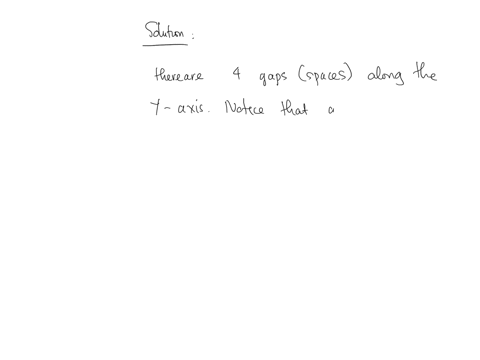 Solution :
there are 4 gaps (spaces) along the
Y-axis. Notice that a